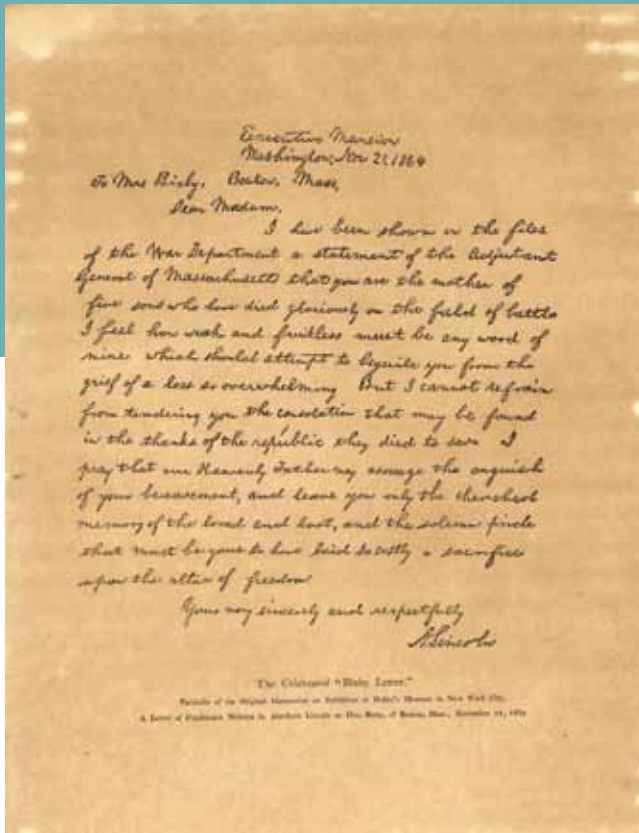 Executive Mansion
Washington, Nov 21, 1864
To Mrs Bixby, Boston, Mass,
Dear Madam,
I have been shown in the files
of the War Department a statement of the Adjutant
General of Massachusetts that you are the mother of
five sons who have died gloriously on the field of battle
I feel how weak and fruitless must be any word of
mine which should attempt to beguile you from the
grief of a loss so overwhelming But I cannot refrain
from tendering you the consolation that may be found
in the thanks of the republic they died to save I
pray that our Heavenly Father may assuage the anguish
of your bereavement, and leave you only the cherished
memory of the loved and lost, and the solemn pride
that must be yours to have laid so costly a sacrifice
upon the altar of freedom
Yours very sincerely and respectfully
A Lincoln
The Celebrated "Bixby Letter."
Facsimile of the Original Manuscript on Exhibition at Huber's Museum in New York City.
A Letter of Condolence Written by Abraham Lincoln to Mrs. Bixby, of Boston, Mass., November 21, 1864